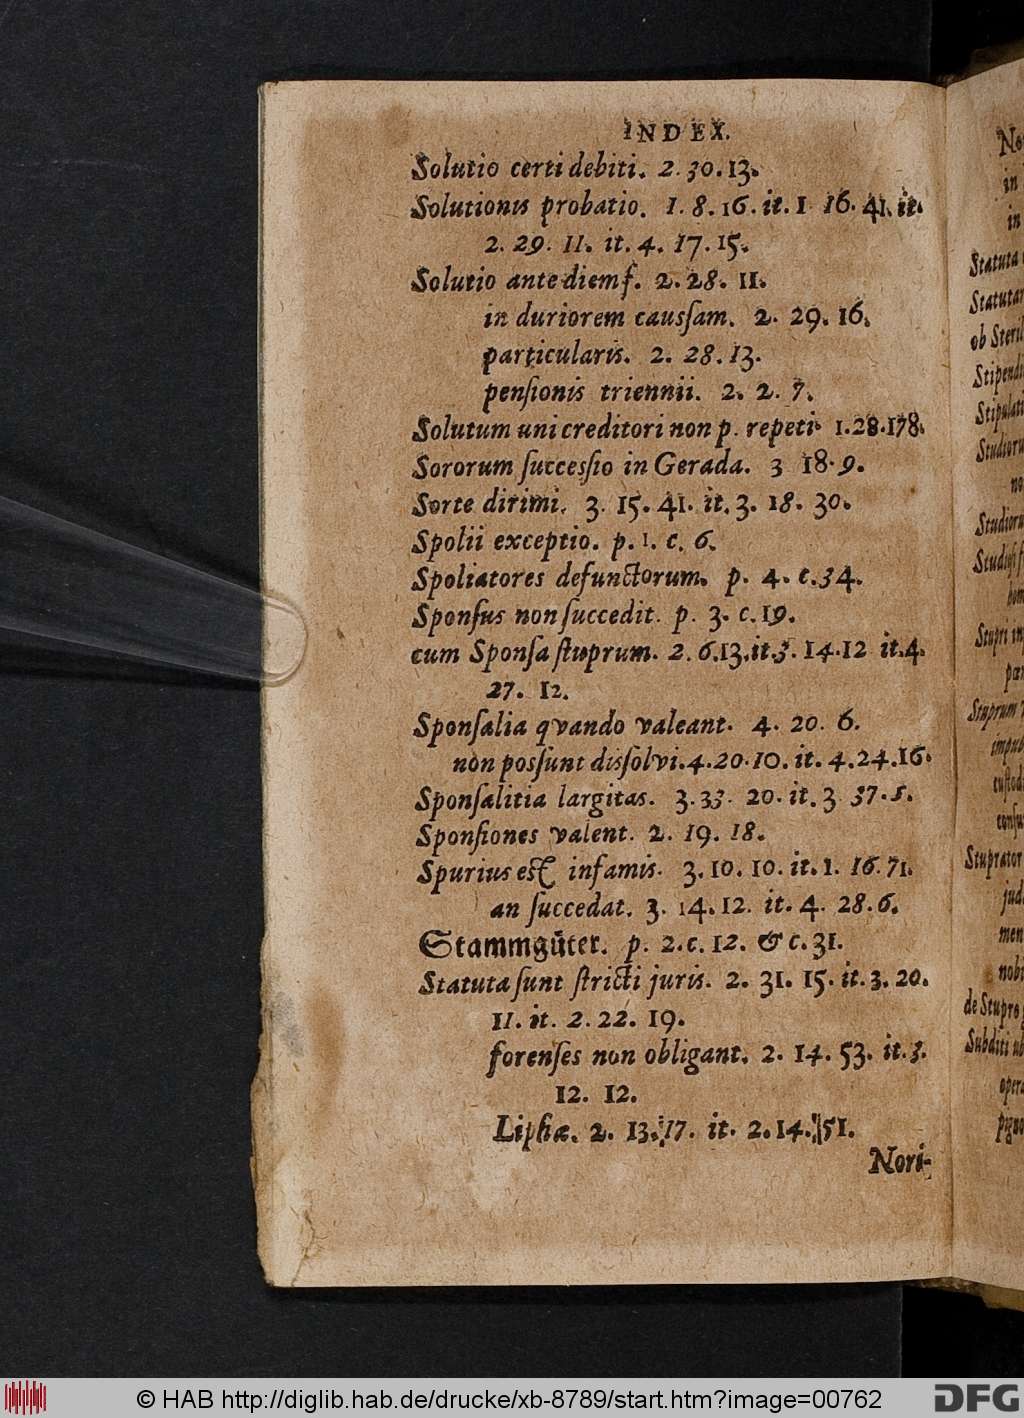 INDEX.
Solutio certi debiti. 2. 30. 13.
Solutionis probatio. 1. 8. 16. it. 1 16. 41. it.
2. 29. 11. it. 4. 17. 15.
Solutio ante diem f. 2. 28. 11.
in duriorem caussam. 2. 29. 16.
particularis. 2. 28. 13.
pensionis triennii. 2. 2. 7.
Solutum uni creditori non p. repeti. 1. 28. 178.
Sororum successio in Gerada. 3 18. 9.
Sorte dirimi. 3. 15. 41. it. 3. 18. 30.
Spolii exceptio. p. 1. c. 6.
Spoliatores defunctorum. p. 4. c. 34.
Sponsus non succedit. p. 3. c. 19.
cum Sponsa stuprum. 2. 6. 13. it. 3. 14. 12 it. 4.
27. 12.
Sponsalia qvando valeant. 4. 20. 6.
non possunt dissolvi. 4. 20. 10. it. 4. 24. 16.
Sponsalitia largitas. 3. 33. 20. it. 3 37. 5.
Sponsiones valent. 2. 19. 18.
Spurius est infamis. 3. 10. 10. it. 1. 16. 71.
an succedat. 3. 14. 12. it. 4. 28. 6.
Stammgüter. p. 2. c. 12. & c. 31.
Statuta sunt stricti juris. 2. 31. 15. it. 3. 20.
11. it. 2. 22. 19.
forenses non obligant. 2. 14. 53. it. 3.
12. 12.
Lipsiæ. 2. 13. 17. it. 2. 14. 51.
Nori-
in
in
Statuta
ob
no
de Stupro
© HAB http://diglib.hab.de/drucke/xb-8789/start.htm?image=00762
DFG